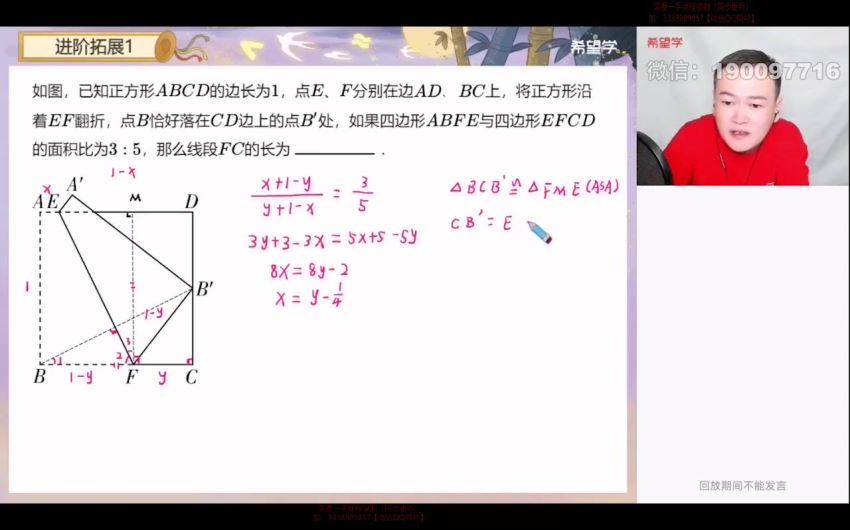 进阶拓展1
希望学
希望学
微信：190097716
如图，已知正方形ABCD的边长为1，点E、F分别在边AD、BC上，将正方形沿
着EF翻折，点B恰好落在CD边上的点B′处，如果四边形ABFE与四边形EFCD
的面积比为3：5，那么线段FC的长为 ________ .
1-x
x
A′
A E
M
D
1
B′
1-y
3
2
1
B
F
C
1-y
y
x+1-y / y+1-x = 3/5
3y+3-3x=5x+5-5y
8x=8y-2
x=y-1/4
△BCB′≌△FME(ASA)
CB′=E
回放期间不能发言